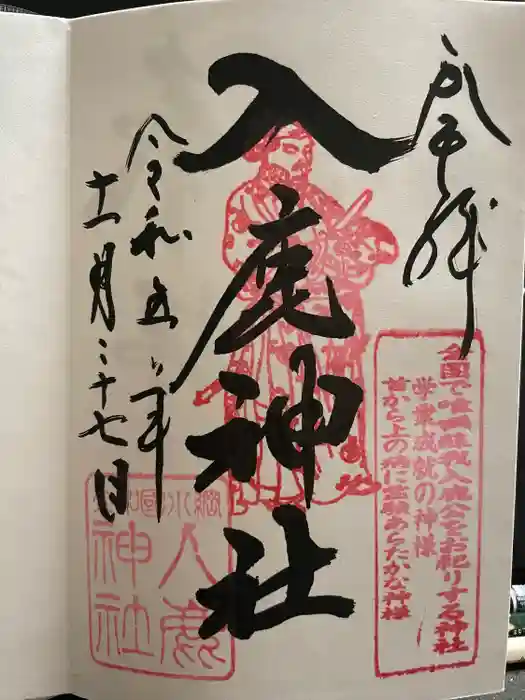 奉拝
全国で唯一蘇我入鹿公をお祀りする神社
学業成就の神様
首から上の病に霊験あらたかな神様
入鹿神社
令和五年
十一月二十七日
入鹿
神社